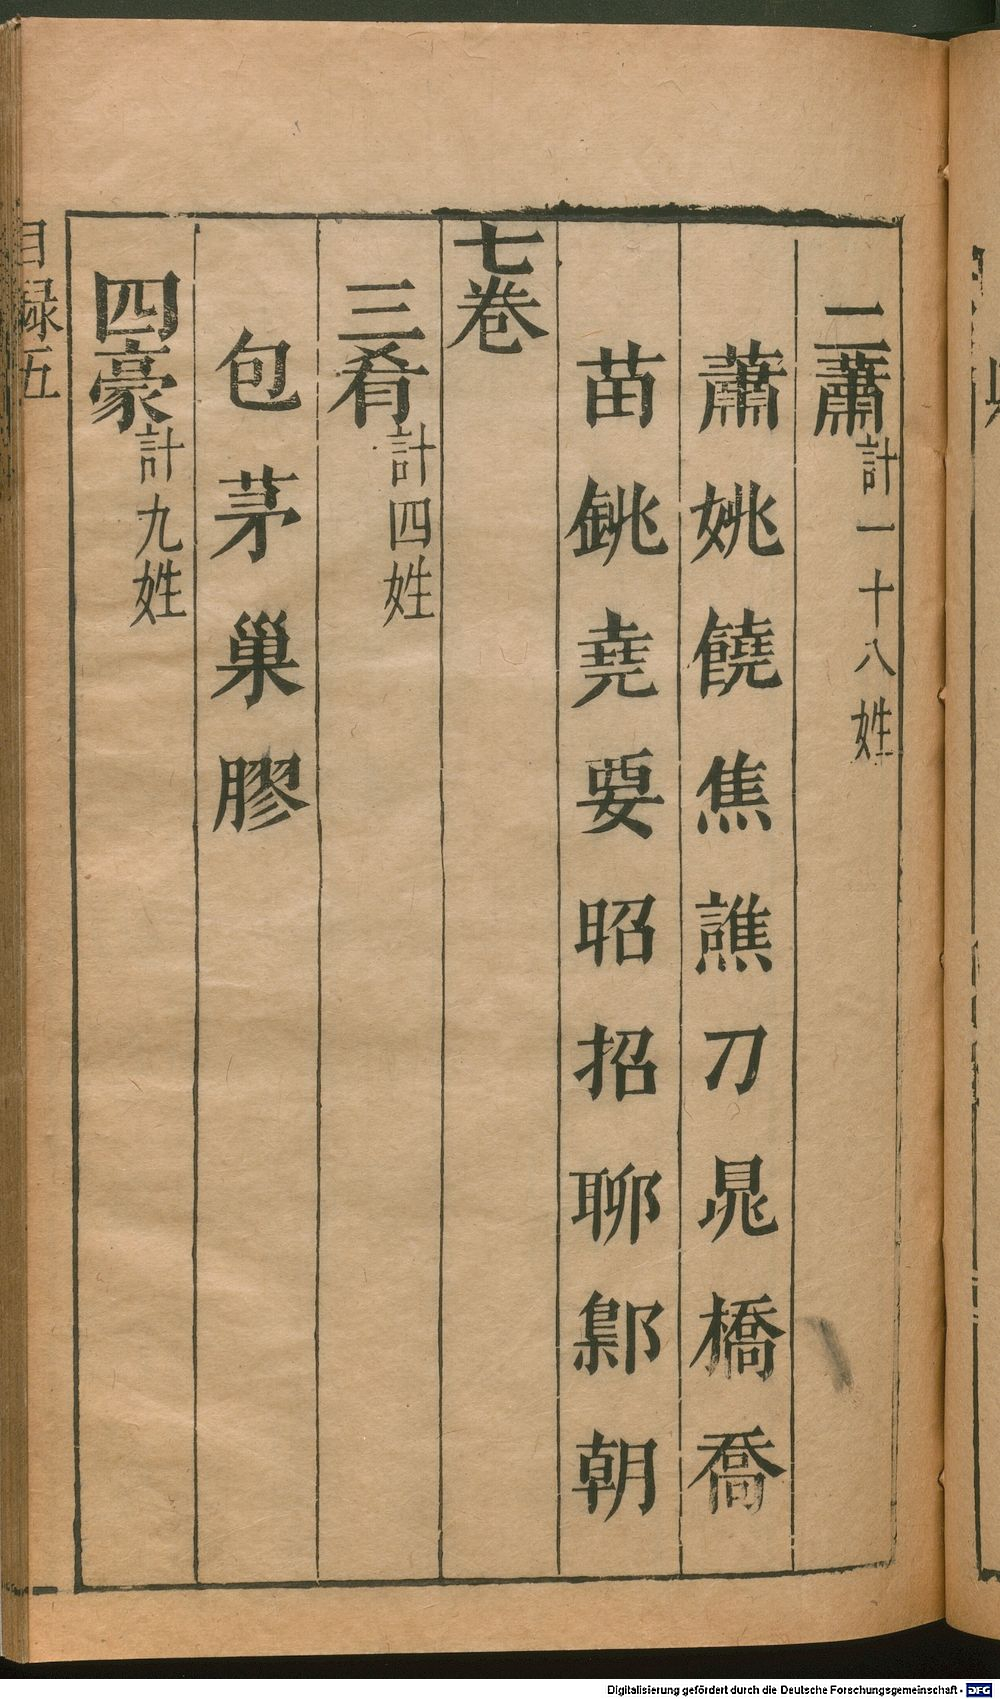 二蕭計一十八姓
蕭姚饒焦譙刀晁橋喬
苗銚堯要昭招聊鄡朝
七卷
三肴計四姓
包茅巢膠
四豪計九姓
目録五
Digitalisierung gefördert durch die Deutsche Forschungsgemeinschaft - DFG